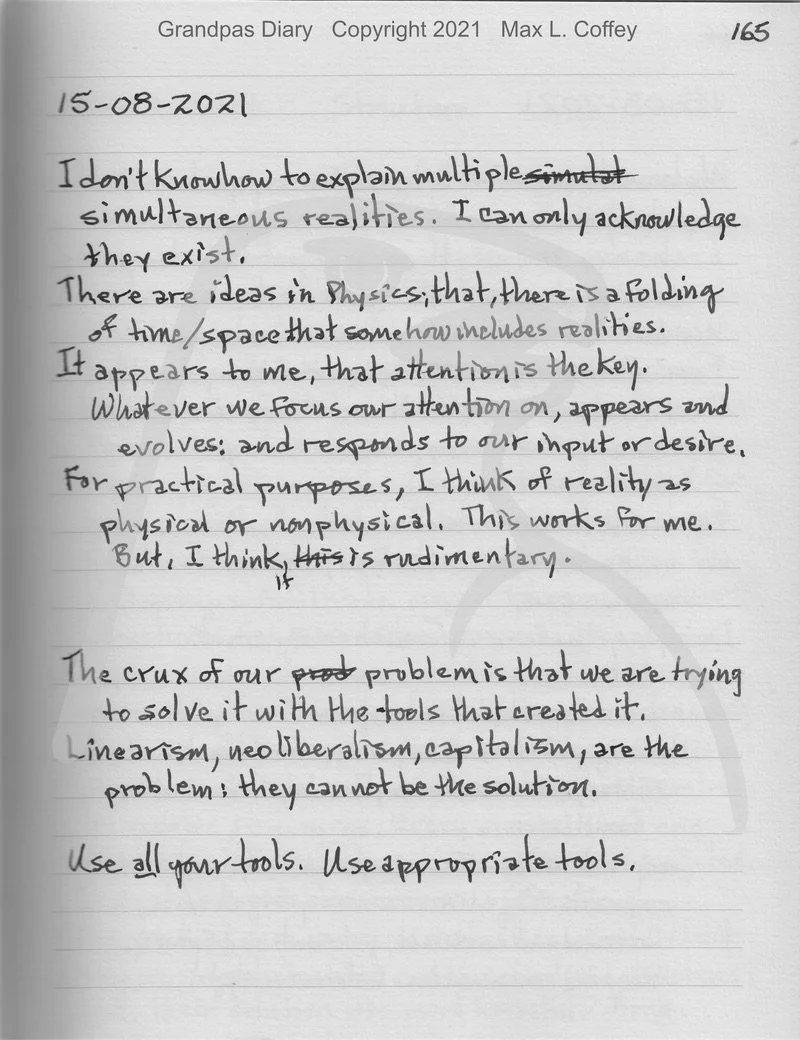 Grandpas Diary Copyright 2021 Max L. Coffey
165
15-08-2021
I don't know how to explain multiple simulat
simultaneous realities. I can only acknowledge
they exist.
There are ideas in Physics; that, there is a folding
of time/space that somehow includes realities.
It appears to me, that attention is the key.
Whatever we focus our attention on, appears and
evolves: and responds to our input or desire.
For practical purposes, I think of reality as
physical or nonphysical. This works for me.
But, I think, this is rudimentary.
it
The crux of our prob problem is that we are trying
to solve it with the tools that created it.
Linearism, neoliberalism, capitalism, are the
problem; they cannot be the solution.
Use all your tools. Use appropriate tools.